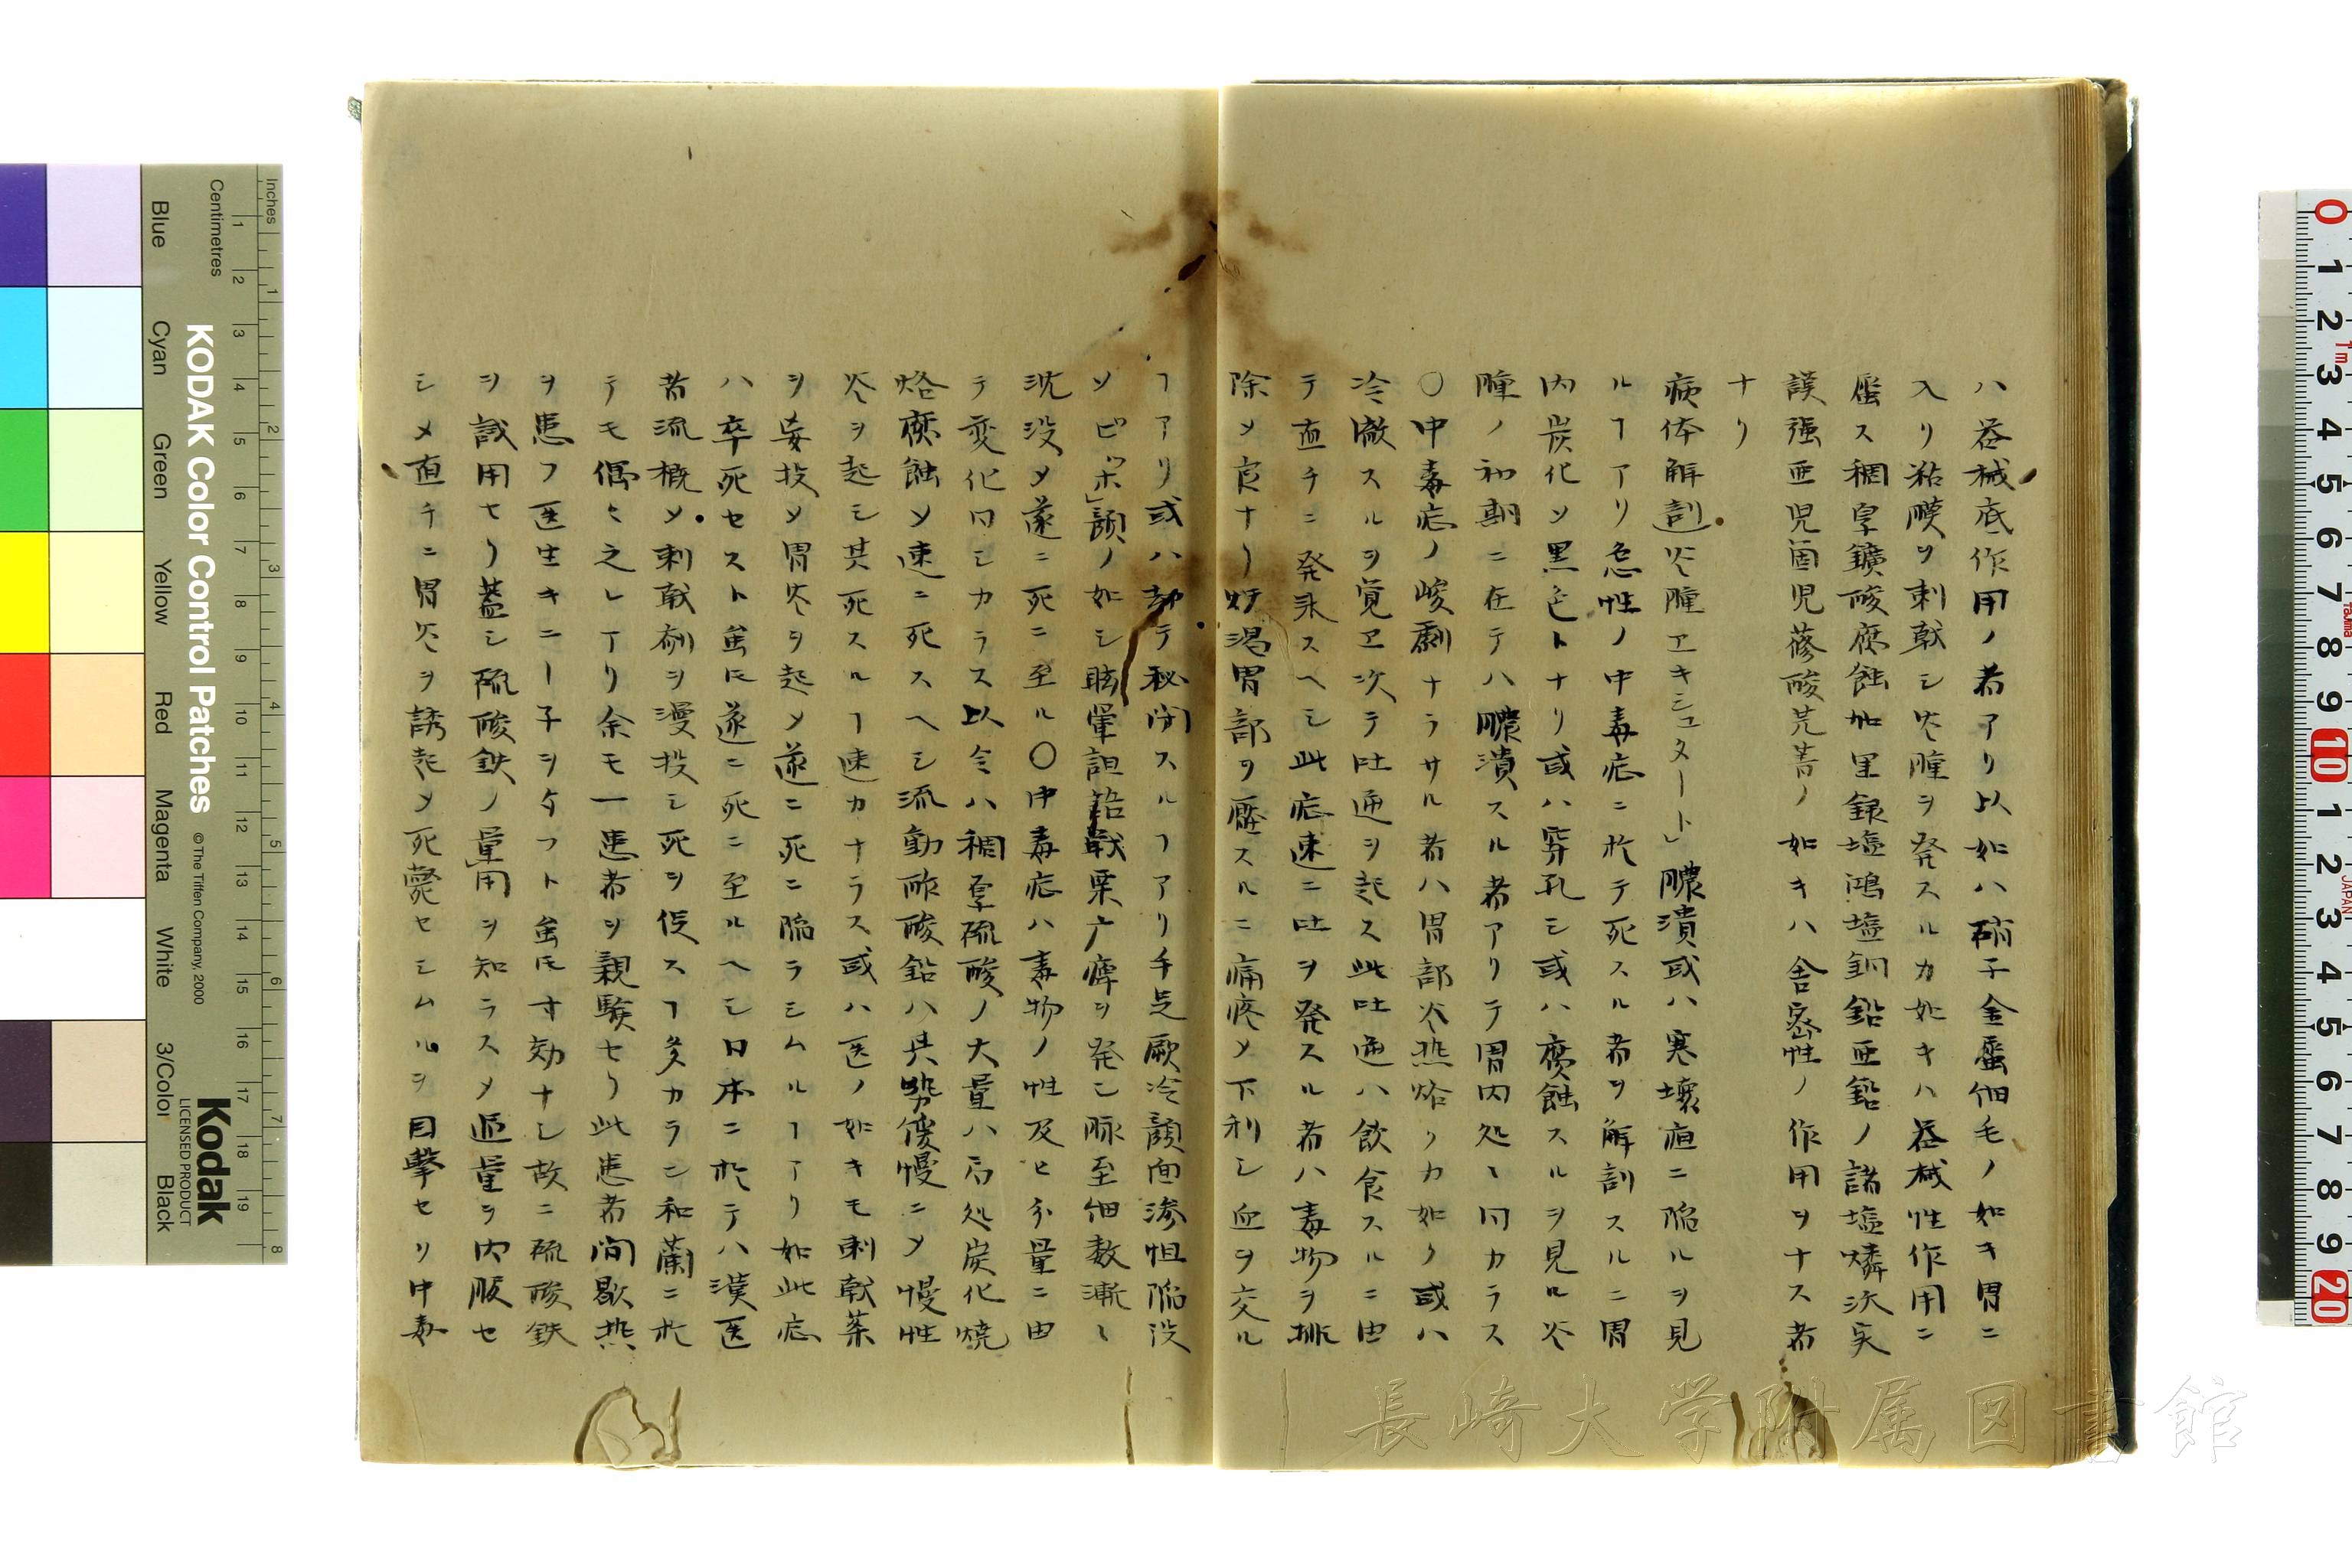 ハ器械底作用ノ者アリ以如ハ硝子金蜃细毛ノ如キ胃ニ
入リ粘膜ヲ刺戟シ炎腫ヲ発スルカ如キハ器械性作用ニ
属ス稠厚鑛酸腐蝕加里銀塩鴻塩銅鉛亜鉛ノ諸塩燐沃実
謨強亜児箇児蓚酸芫菁ノ如キハ舎密性ノ作用ヲナス者
ナリ
病体解剖炎腫エキシュタート」膿潰或ハ寒壊疽ニ陥ルヲ見
ルヿアリ急性ノ中毒症ニ於テ死スル者ヲ解剖スルニ胃
内炭化シ黒色トナリ或ハ穿孔シ或ハ腐蝕スルヲ見ル炎
腫ノ初期ニ在テハ膿潰スル者アリテ胃内処〻同カラス
〇中毒症ノ峻劇ナラサル者ハ胃部炎熱烙クカ如ク或ハ
冷徹スルヲ覚ヱ次テ吐逆ヲ起ス此吐逆ハ飲食スルニ由
テ直チニ発来スヘシ此症速ニ吐ヲ発スル者ハ毒物ヲ排
除メ良ナリ煩渇胃部ヲ壓スルニ痛疼メ下利シ血ヲ交ル
ヿアリ或ハ却テ秘閉スルヿアリ手足厥冷顔面滲怛陥没
ソ「ピッポ」顔ノ如シ眩暈詛語戰栗广痺ヲ発シ脉至細数漸〻
沈没メ遂ニ死ニ至ル〇中毒症ハ毒物ノ性及ヒ分量ニ由
テ変化同シカラス以令ハ稠厚硫酸ノ大量ハ局処炭化焼
烙腐蝕メ速ニ死スヘシ流動酢酸鉛ハ其勢優慢ニメ慢性
炎ヲ起シ其死スルヿ速カナラス或ハ医ノ如キモ刺戟薬
ヲ妄投メ胃炎ヲ起メ遂ニ死ニ陥ラシムルヿアリ如此症
ハ卒死セスト雖𪜈遂ニ死ニ至ルヘシ日本ニ於テハ漢医
者流概メ刺戟剤ヲ漫投シ死ヲ促スヿ多カラン和蘭ニ於
テモ偶〻之レアリ余モ一患者ヲ親験セリ此患者間歇热
ヲ患フ医生キニー子ヲ与フト雖𪜈寸効ナシ故ニ硫酸鉄
ヲ試用セリ蓋シ硫酸鉄ノ量用ヲ知ラスメ過量ヲ内服セ
シメ直チニ胃炎ヲ誘起メ死斃セシムルヲ目撃セリ中毒
KODAK Color Control Patches
© The Tiffen Company, 2000
Kodak
LICENSED PRODUCT
Inches
Centimetres
Blue Cyan Green Yellow Red Magenta White 3/Color Black
長崎大学附属図書館